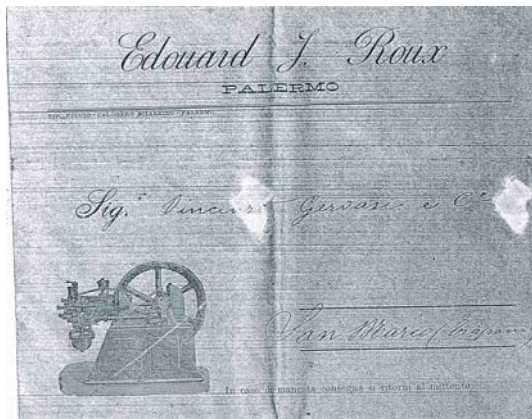 Edouard J. Roux
PALERMO
Sig. Vincenzo Gervasi e C.
San Marco (Trapani)
In caso di mancata consegna si ritorni al mittente